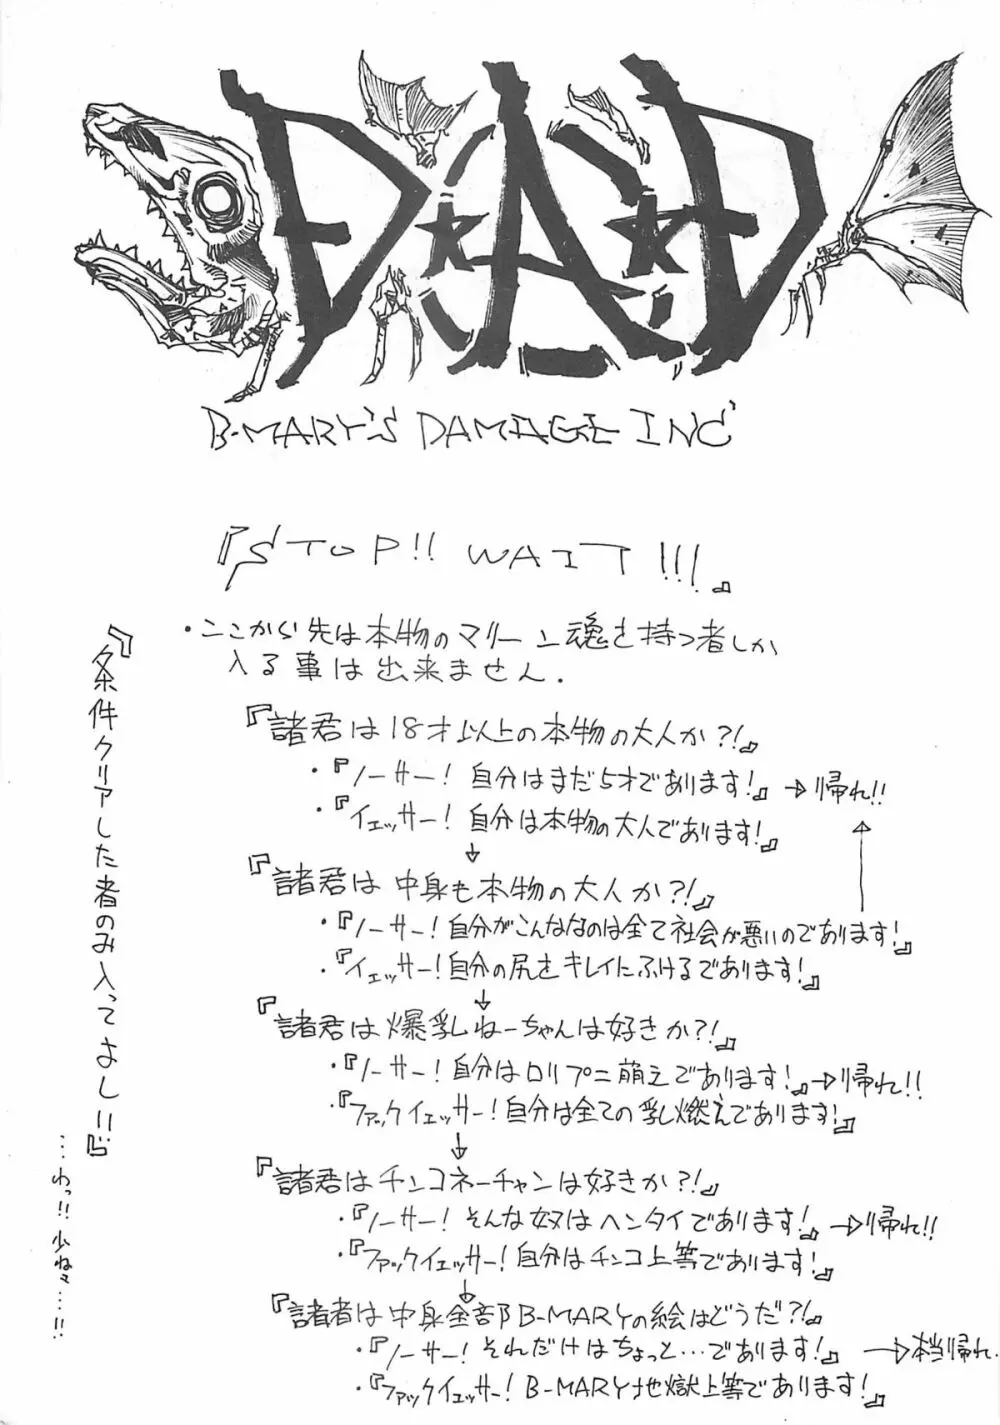 D★A★D
B-MARY'S DAMAGE INC'
『STOP!! WAIT!!!』
・ここから先は本物のマリーン魂を持つ者しか
入る事は出来ません.
『諸君は18才以上の本物の大人か?!』
・『ノーサー!自分はまだ5才であります!』→帰れ!!
・『イエッサー!自分は本物の大人であります!』
↓
『諸君は中身も本物の大人か?!』
・『ノーサー!自分がこんななのは全て社会が悪いのであります!』
・『イエッサー!自分の尻をキレイにふけるであります!』
↓
『諸君は爆乳ねーちゃんは好きか?!』
・『ノーサー!自分はロリプニ萌えであります!』→帰れ!!
・『ファックイエッサー!自分は全ての乳燃えであります!』
↓
『諸君はチンコネーチャンは好きか?!』
・『ノーサー!そんな奴はヘンタイであります!』→帰れ!!
・『ファックイエッサー!自分はチンコ上等であります!』
↓
『諸者は中身全部B-MARYの絵はどうだ?!』
・『ノーサー!それだけはちょっと…であります!』→本当帰れ.
・『ファックイエッサー!B-MARY地獄上等であります!』
『条件クリアした者のみ入ってよし!!』
…わっ!!少ねぇ…!!